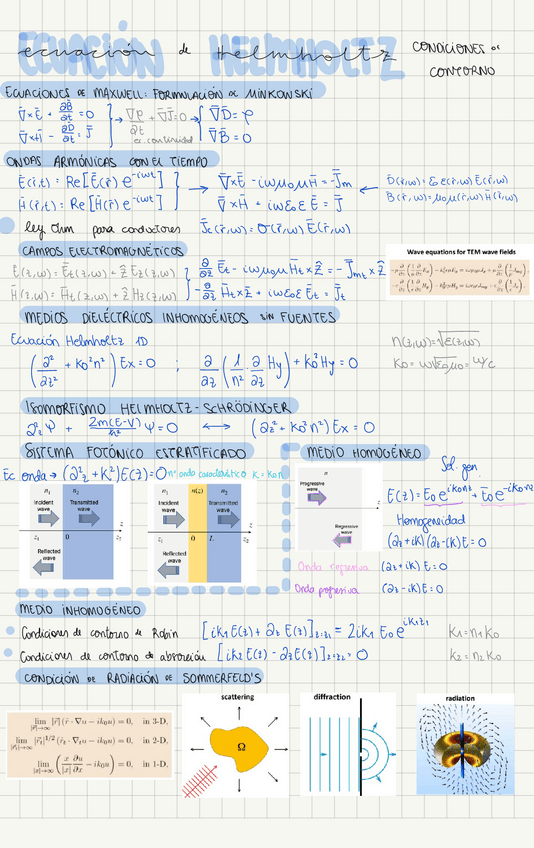 ecuación de Helmholtz CONDICIONES DE CONTORNO
ECUACIONES DE MAXWELL: FORMULACIÓN DE MINKOWSKI
∇̄×Ē + ∂B̄/∂t = 0
∇̄×H̄ - ∂D̄/∂t = J̄
ec. continuidad
∇̄D̄ = ρ
∇̄B̄ = 0
ONDAS ARMÓNICAS CON EL TIEMPO
Ē(r̄,t) = Re[Ē(r̄) e^{-iωt}]
H̄(r̄,t) = Re[H̄(r̄) e^{-iωt}]
→ ∇̄×Ē - iωμ₀μH̄ = -J̄m
∇̄×H̄ + iωε₀εĒ = J̄
D̄(r̄,ω) = ε₀ε(r̄,ω)Ē(r̄,ω)
B̄(r̄,ω) = μ₀μ(r̄,ω)H̄(r̄,ω)
ley Ohm para conductores J̄c(r̄,ω) = σ(r̄,ω)Ē(r̄,ω)
CAMPOS ELECTROMAGNÉTICOS
Ē(z,ω) = Ēt(z,ω) + ẑ Ez(z,ω)
H̄(z,ω) = H̄t(z,ω) + ẑ Hz(z,ω)
∂/∂z Ēt - iωμ₀μH̄t×ẑ = -J̄mt×ẑ
-∂/∂z H̄t×ẑ + iωε₀εĒt = J̄t
Wave equations for TEM wave fields
MEDIOS DIELÉCTRICOS INHOMOGÉNEOS SIN FUENTES
Ecuación Helmholtz 1D
(∂²/∂z² + k₀²n²) Ex = 0 ; ∂/∂z (1/n² · ∂/∂z Hy) + k₀²Hy = 0
n(z,ω) = √ε(z,ω)
k₀ = ω√ε₀μ₀ = ω/c
ISOMORFISMO HELMHOLTZ-SCHRÖDINGER
∂²z Ψ + 2m(E-V)/ħ² Ψ = 0 ↔ (∂z² + k₀²n²) Ex = 0
SISTEMA FOTÓNICO ESTRATIFICADO
Ec onda → (∂²z + K²)E(z) = 0 nº onda característico K = k₀n
n₁ n₂
Incident wave
Transmitted wave
Reflected wave
z₁ 0 z₂
n₁ n(z) n₂
Incident wave
Transmitted wave
Reflected wave
z₁ 0 L z₂
MEDIO HOMOGÉNEO
n
Progressive wave
Regressive wave
Sol. gen.
E(z) = E₀ e^{ik₀nz} + Ē₀ e^{-ik₀nz}
Homogeneidad
(∂z + iK)(∂z - iK)E = 0
Onda regresiva (∂z + iK)E = 0
Onda progresiva (∂z - iK)E = 0
MEDIO INHOMOGÉNEO
Condiciones de contorno de Robin [ik₁E(z) + ∂z E(z)]z=z₁ = 2ik₁ E₀ e^{ik₁z₁} k₁ = n₁k₀
Condiciones de contorno de absorción [ik₂E(z) - ∂zE(z)]z=z₂ = 0 k₂ = n₂k₀
CONDICIÓN DE RADIACIÓN DE SOMMERFELD'S
lim |r⃗|→∞ |r⃗| (r̂ · ∇u - ik₀u) = 0, in 3-D,
lim |r⃗t|→∞ |r⃗t|^{1/2} (r̂t · ∇tu - ik₀u) = 0, in 2-D,
lim |x|→∞ (x/|x| ∂u/∂x - ik₀u) = 0, in 1-D.
scattering
Ω
diffraction
radiation